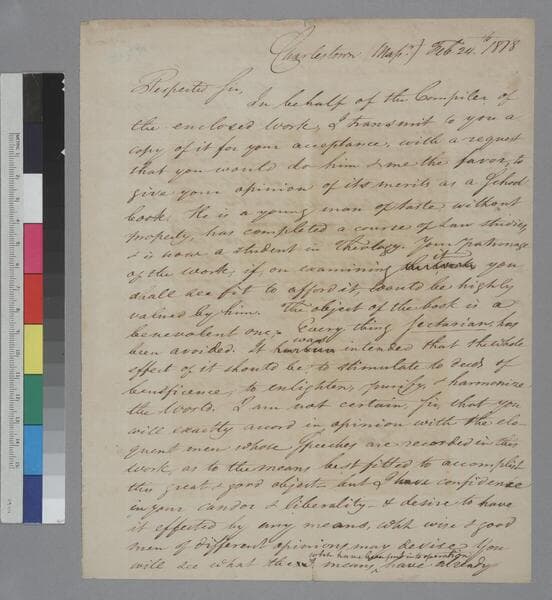 Charlestown (Mass.) Feb. 24th. 1818
Respected Sir,
In behalf of the Compiler of
the enclosed Work, I transmit to you a
copy of it for your acceptance, with a request
that you would do him & me the favor, to
give your opinion of its merits as a School
book. He is a young man of taste without
property, has completed a course of Law studies,
& is now a student in Theology. Your patronage
of the work, if on examining it you
shall see fit to afford it, would be highly
valued by him. The object of the book is a
benevolent one. Every thing sectarian, has
been avoided. It was intended that the whole
effect of it should be, to stimulate to deeds of
beneficence, to enlighten, purify, & harmonize
the World. I am not certain, Sir, that you
will exactly accord in opinion with the elo-
quent men whose Speeches are recorded in this
work, as to the means best fitted to accomplish
this great & good object. but I have confidence
in your candor & liberality & desire to have
it effected by any means, which wise & good
men of different opinions may devise. You
which have been put into operation
will see what the means, have already